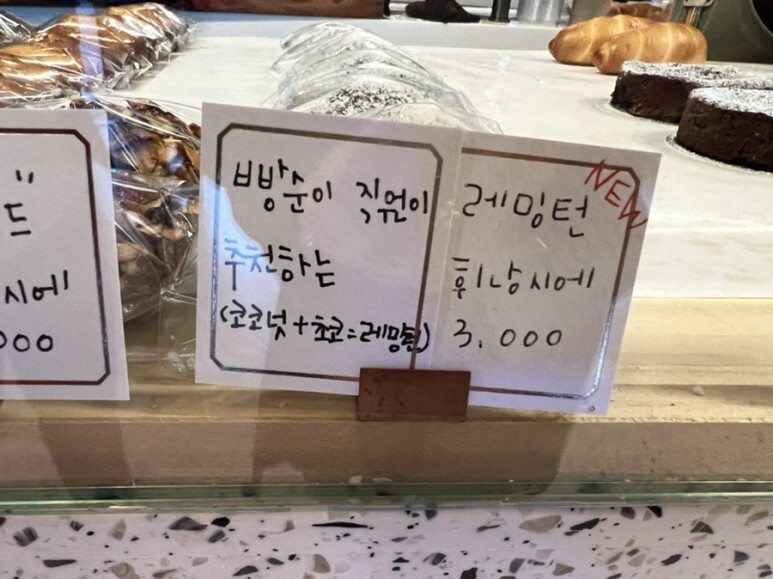 "
드
시에
000
빵순이 직원이
추천하는
(코코넛+초코=레밍턴)
NEW
레밍턴
휘낭시에
3,000